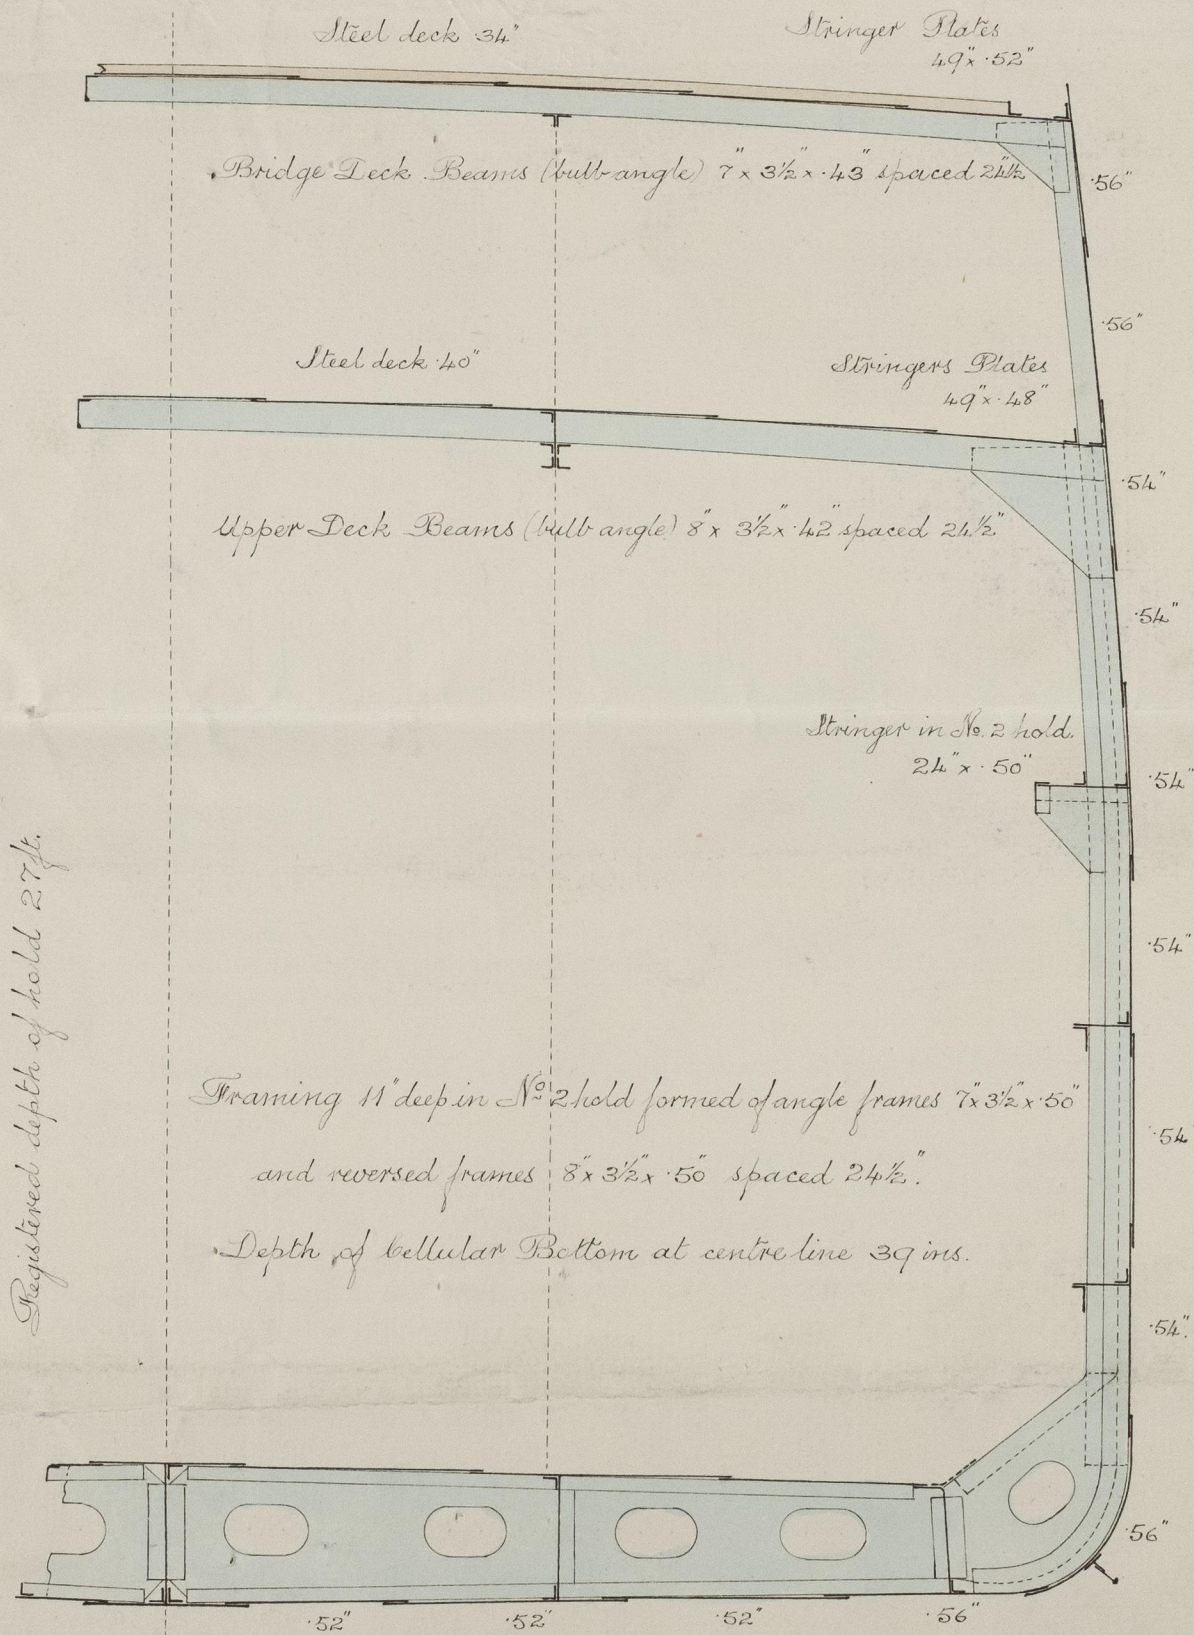 Steel deck ·34"
Stringer Plates
49" x ·52"
Bridge Deck Beams (bulb angle) 7" x 3½" x ·43" spaced 24½"
·56"
·56"
Steel deck ·40"
Stringers Plates
49" x ·48"
·54"
Upper Deck Beams (bulb angle) 8" x 3½" x ·42" spaced 24½"
·54"
Stringer in No. 2 hold.
24" x ·50"
·54"
Registered depth of hold 27ft.
·54"
Framing 11" deep in No 2 hold formed of angle frames 7" x 3½" x ·50"
·54
and reversed frames 8" x 3½" x ·50" spaced 24½".
Depth of Cellular Bottom at centre line 39 ins.
·54".
·56"
·52"
·52"
·52"
·56"